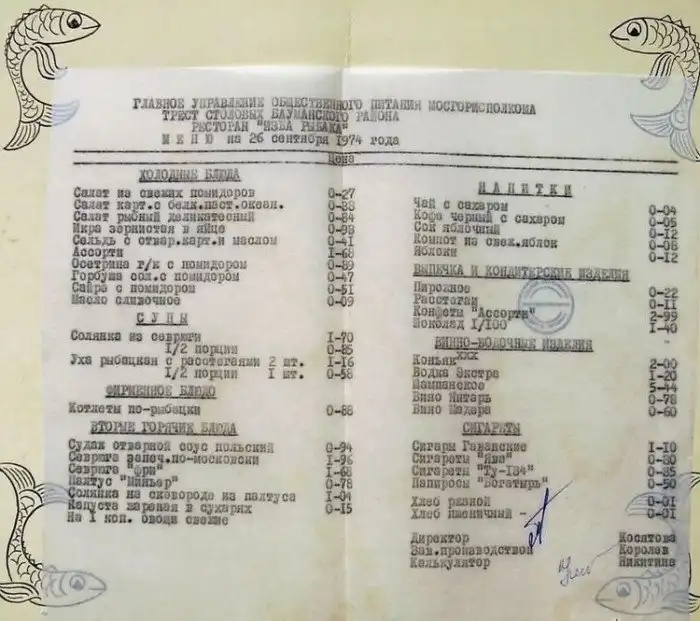 ГЛАВНОЕ УПРАВЛЕНИЕ ОБЩЕСТВЕННОГО ПИТАНИЯ МОСГОРИСПОЛКОМА
ТРЕСТ СТОЛОВЫХ БАУМАНСКОГО РАЙОНА
РЕСТОРАН "ИЗБА РЫБАКА"
М Е Н Ю на 26 сентября 1974 года
Цена
ХОЛОДНЫЕ БЛЮДА
Салат из свежих помидоров 0-27
Салат карт.с белк.паст.океан. 0-38
Салат рыбный деликатесный 0-84
Икра зернистая в яйце 0-98
Сельдь с отвар.карт.и маслом 0-41
Ассорти I-68
Осетрина г/к с помидором 0-89
Горбуша сол.с помидором 0-47
Сайра с помидором 0-51
Масло сливочное 0-09
С У П Ы
Солянка из севрюги I-70
I/2 порции 0-85
Уха рыбацкая с расстегаями 2 шт. I-16
I/2 порции I шт. 0-58
ФИРМЕННОЕ БЛЮДО
Котлеты по-рыбацки 0-88
ВТОРЫЕ ГОРЯЧИЕ БЛЮДА
Судак отварной соус польский 0-94
Севрюга запеч.по-московски I-96
Севрюга "фри" I-68
Палтус 0-78
Солянка на сковороде из палтуса I-04
Капуста жареная в сухарях 0-15
На I коп. овощи свежие
Н А П И Т К И
Чай с сахаром 0-04
Кофе черный с сахаром 0-05
Сок яблочный 0-12
Компот из свеж.яблок 0-08
Яблоки 0-12
ВЫПЕЧКА И КОНДИТЕРСКИЕ ИЗДЕЛИЯ
Пирожное 0-22
Расстегаи 0-11
Конфеты "Ассорти" 2-99
Шоколад I/100 I-40
ВИННО-ВОДОЧНЫЕ ИЗДЕЛИЯ
Коньяк ххх 2-00
Водка Экстра I-20
Шампанское 5-44
Вино Янтарь 0-78
Вино Мадера 0-60
СИГАРЕТЫ
Сигары Гаванские I-10
Сигареты "Ява" 0-30
Сигареты "Ту-134" 0-35
Папиросы "Богатырь" 0-50
Хлеб ржаной 0-01
Хлеб пшеничный - 0-01
Директор Косятова
Зав.производством Королев
Калькулятор Никитина